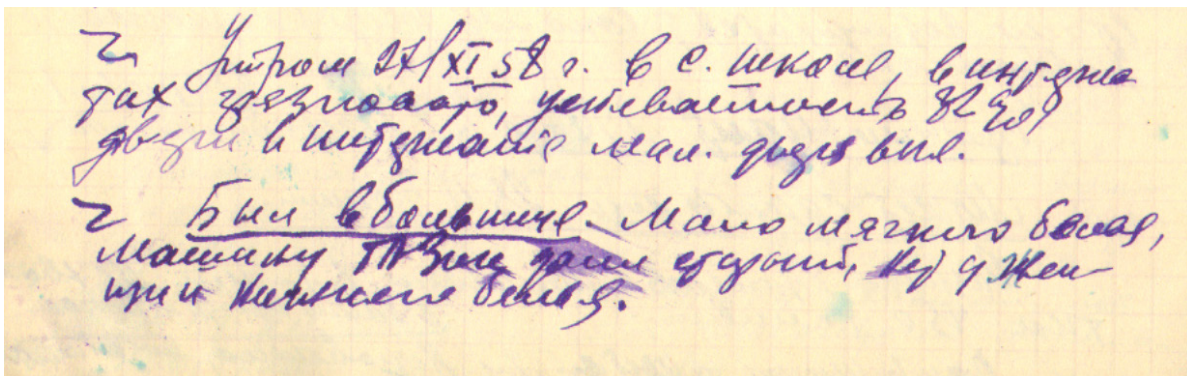 Утром 27/XI 58 г. в с. школе, в интерна
тах грязновато, успеваемость 82%,
двери в интернате мал.
Был в больнице. Мало мягкого белья,
машину ГАЗик дали старый, нет у жен-
щин нижнего белья.